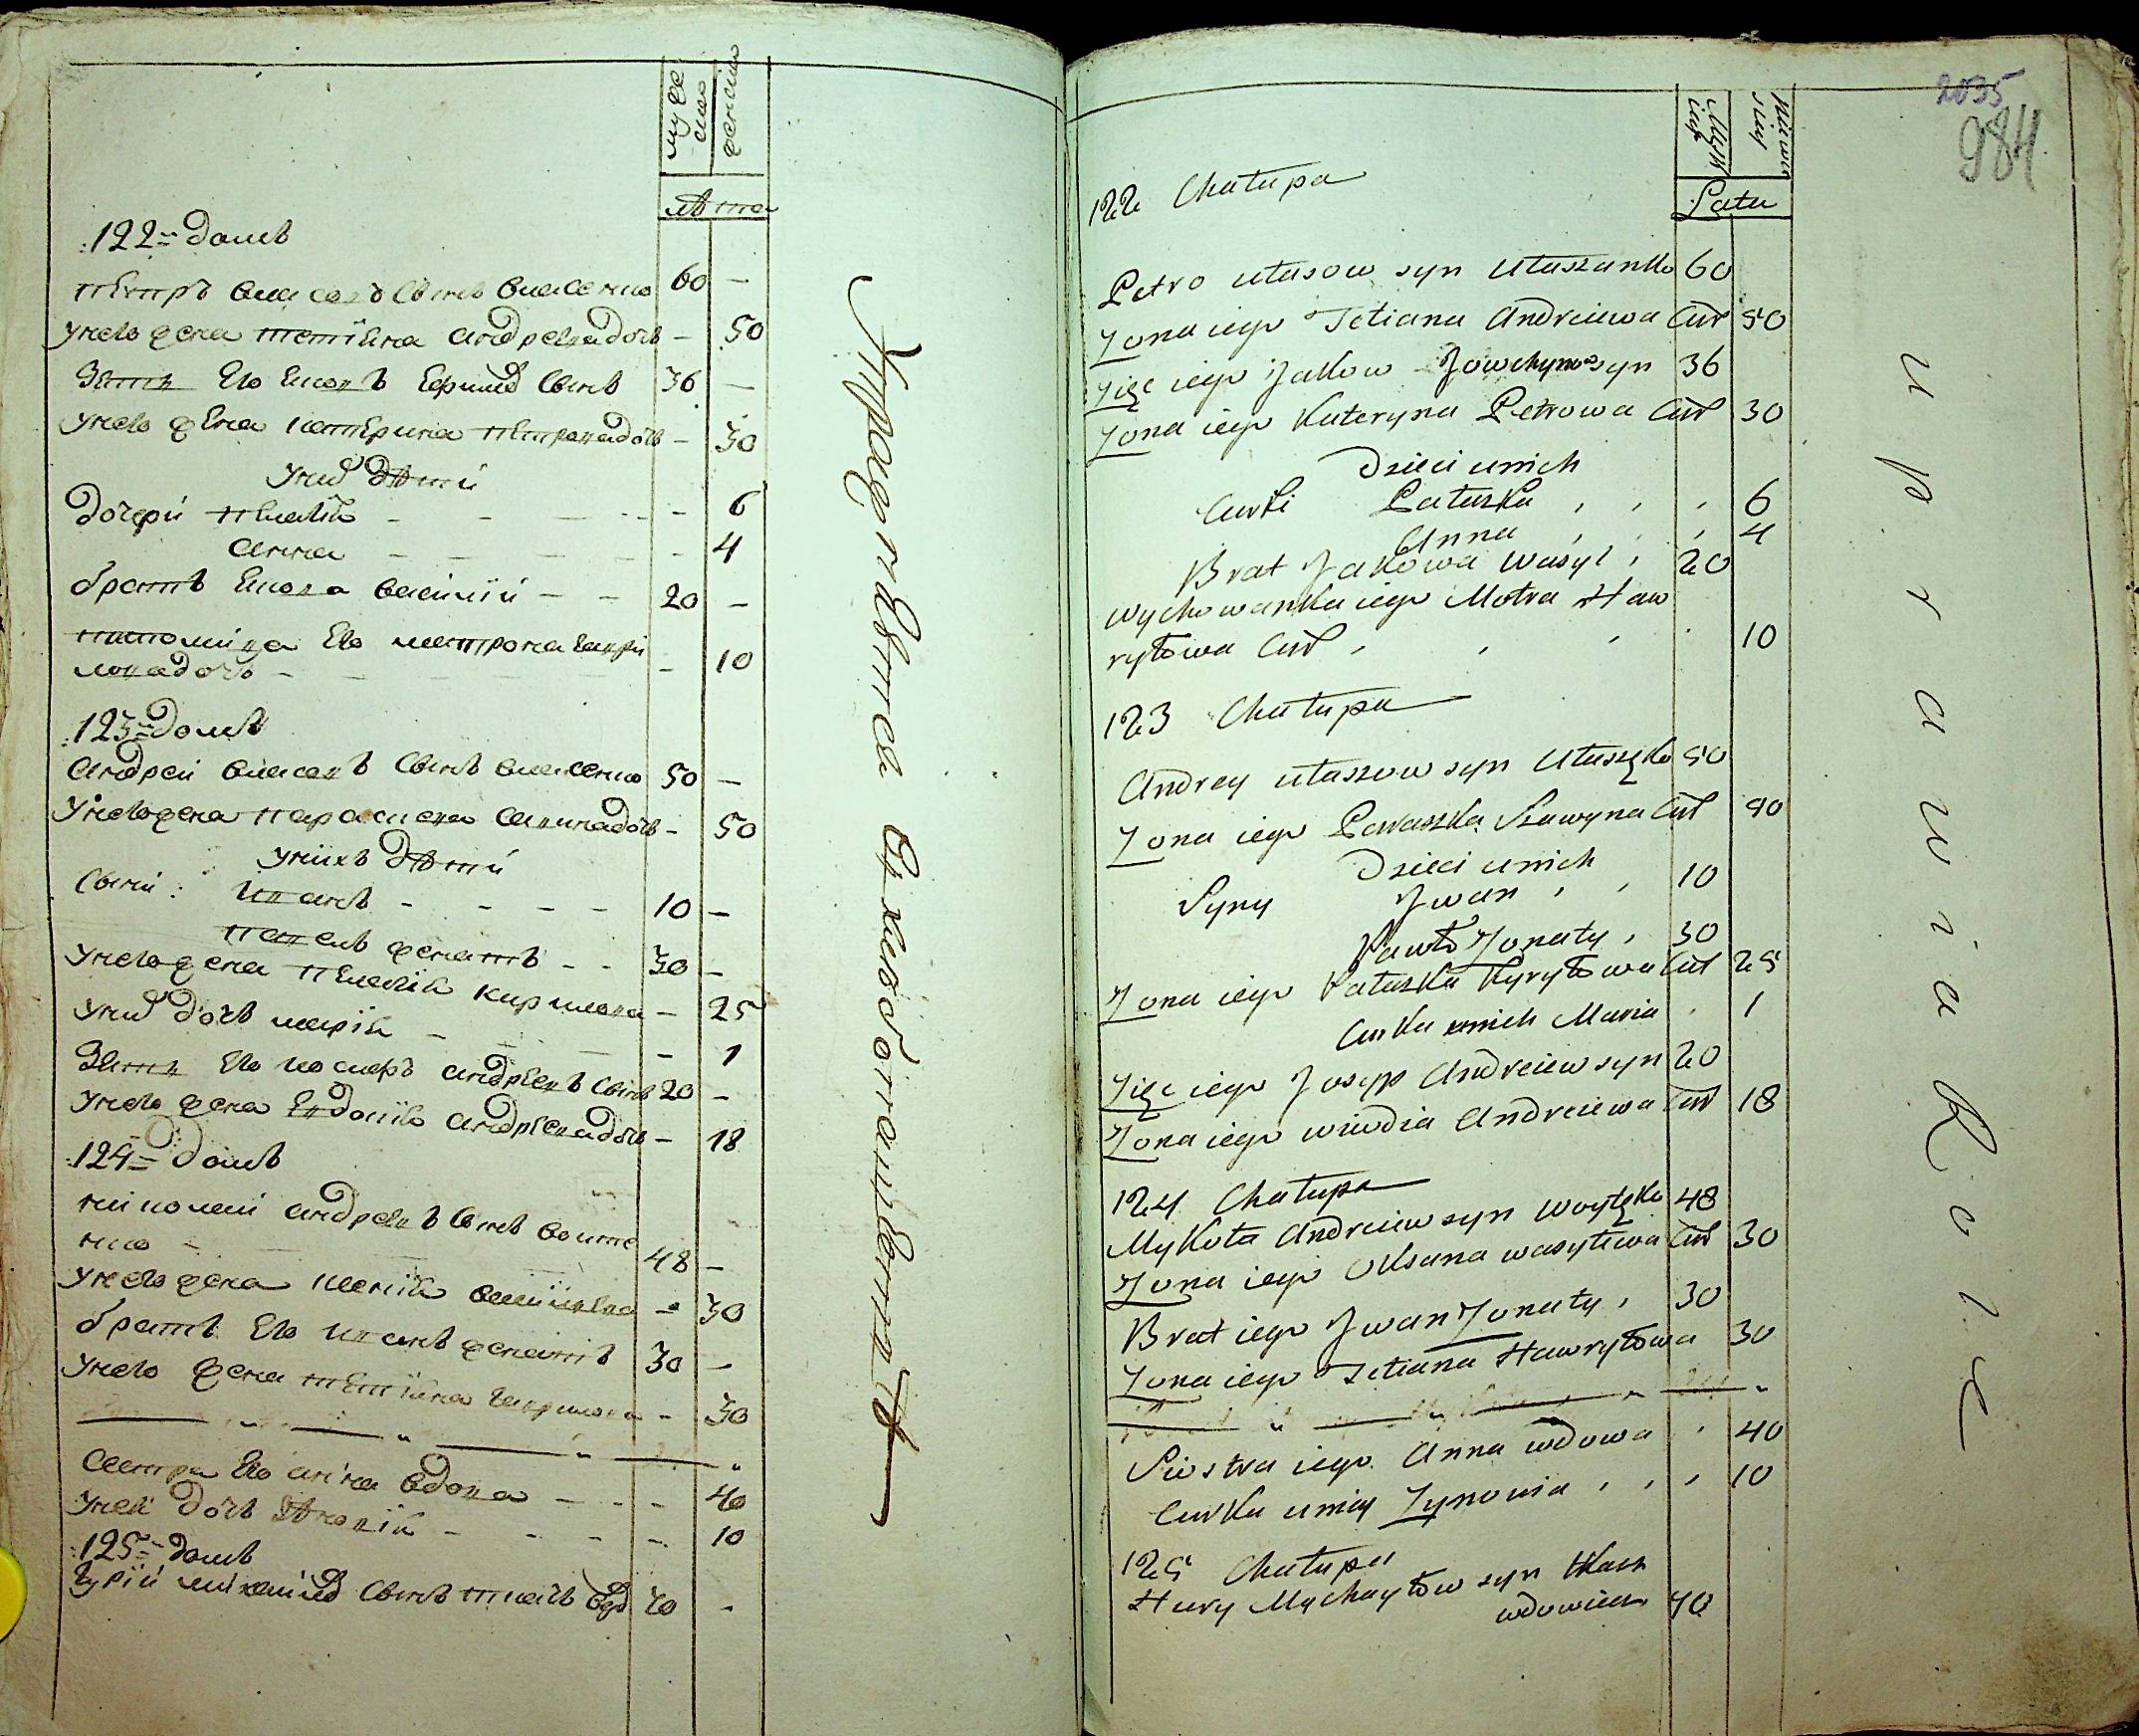 мужеско
женско
лѣта
:122= домъ
петръ власовъ сынъ власенко 60 —
унего жена тетіяна андреева дочь — 50
Зять Его яковъ Евфимов сынъ 36 —
унего жена катерина петрова дочь — 30
уних дѣти
дочери пелагія — 6
анна — 4
братъ якова василій — 20 —
питомица Его матрона гаври
лова дочь — 10
:123= домъ
андреи власовъ сынъ власенко 50 —
унего жена параскева савина дочь — 50
унихъ дѣти
Сыни: иванъ — 10 —
павелъ женатъ — 30 —
унего жена пелагія кирилова — 25
уних дочь марія — 1
Зять Его иосифъ андреевъ сынъ 20 —
унего жена Евдокія андреева дочь — 18
:124= домъ
николай андреевъ сынъ воите
нко — 48 —
унего жена ксенія василіева — 30
братъ Его иванъ женатъ 30 —
унего жена тетіяна гаврилова — 30
Сестра Его анна вдова — 40
унеи дочь зѣновія — 10
:125= домъ
гурій михаилов сынъ ткачъ вдо 70 -
Управителъ
2035
984
Męzk
iey
Niewia
sciey
Latu
122 Chałupa
Petro Ułasow syn Ułaszenko 60
Zona iego Tetiana Andreiewa Cur 50
Zięc iego Jakow Jowchymow syn 36
Zona iego Kateryna Petrowa Cur 30
Dzieci unich
Curki Pałaszka 6
Anna 4
Brat Jakowa Wasyl 20
Wychowanka iego Motra Haw
ryłowa Cur 10
123 Chałupa
Andrey Ułassow syn Ułaszęko 50
Zona iego Paraszka Sawyna Cur 50
Dzieci unich
Syny Jwan 10
Pawło Zonaty 30
Zona iego Pałaszka Kyryłowa Cur 25
Curka unich Maria 1
Zięc iego Josyp Andreiew syn 20
Zona iego wiwdia Andreiewa Cur 18
124 Chałupa
Mykoła Andreiew syn Woytęko 48
Zona iego Oksana wasylewa Cur 30
Brat iego Jwan Zonaty 30
Zona iego Tetiana Hawryłowa 30
Siostra iego Anna wdowa 40
Curka uniey Zynowia 10
125 Chałupa
Hury Mychayłow syn tkacz
wdowiec 70